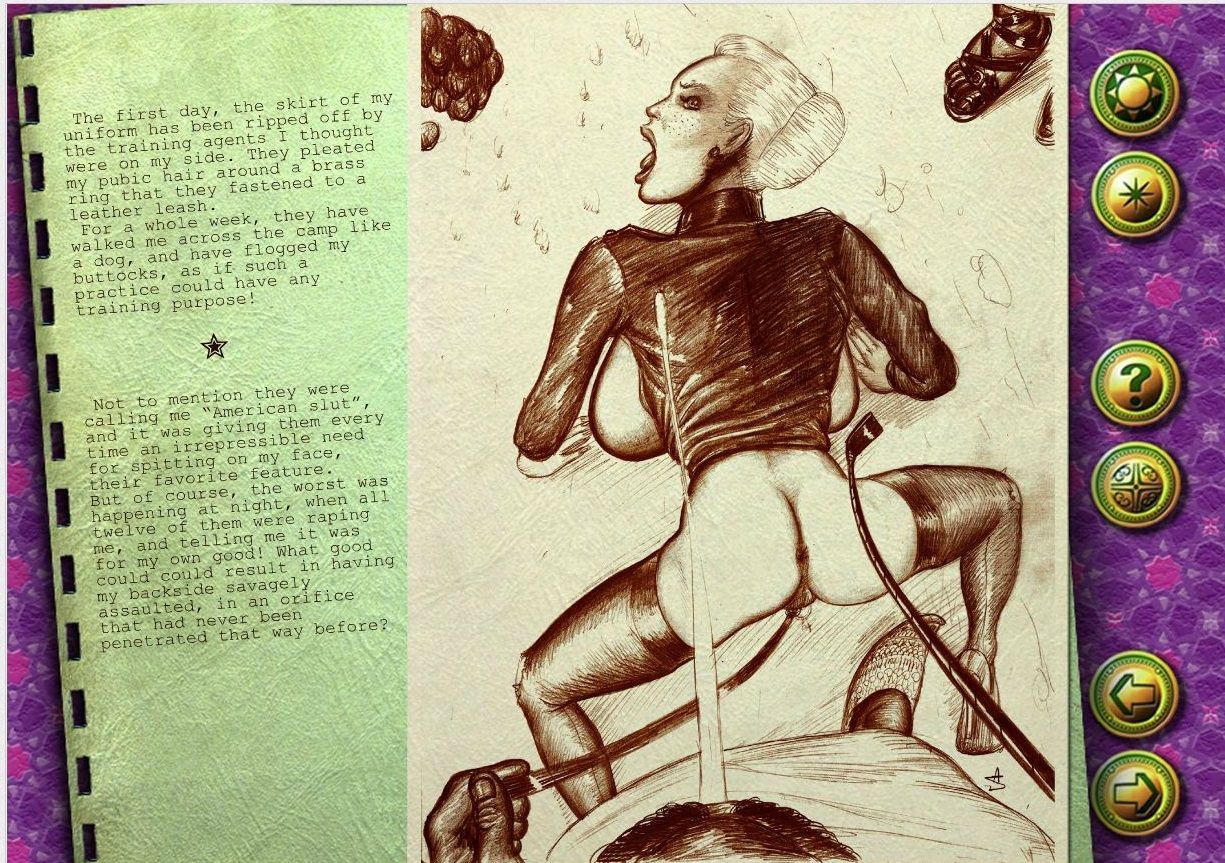 The first day, the skirt of my
uniform has been ripped off by
the training agents I thought
were on my side. They pleated
my pubic hair around a brass
ring that they fastened to a
leather leash.
For a whole week, they have
walked me across the camp like
a dog, and have flogged my
buttocks, as if such a
practice could have any
training purpose!
Not to mention they were
calling me “American slut”,
and it was giving them every
time an irrepressible need
for spitting on my face,
their favorite feature.
But of course, the worst was
happening at night, when all
twelve of them were raping
me, and telling me it was
for my own good! What good
could could result in having
my backside savagely
assaulted, in an orifice
that had never been
penetrated that way before?
?